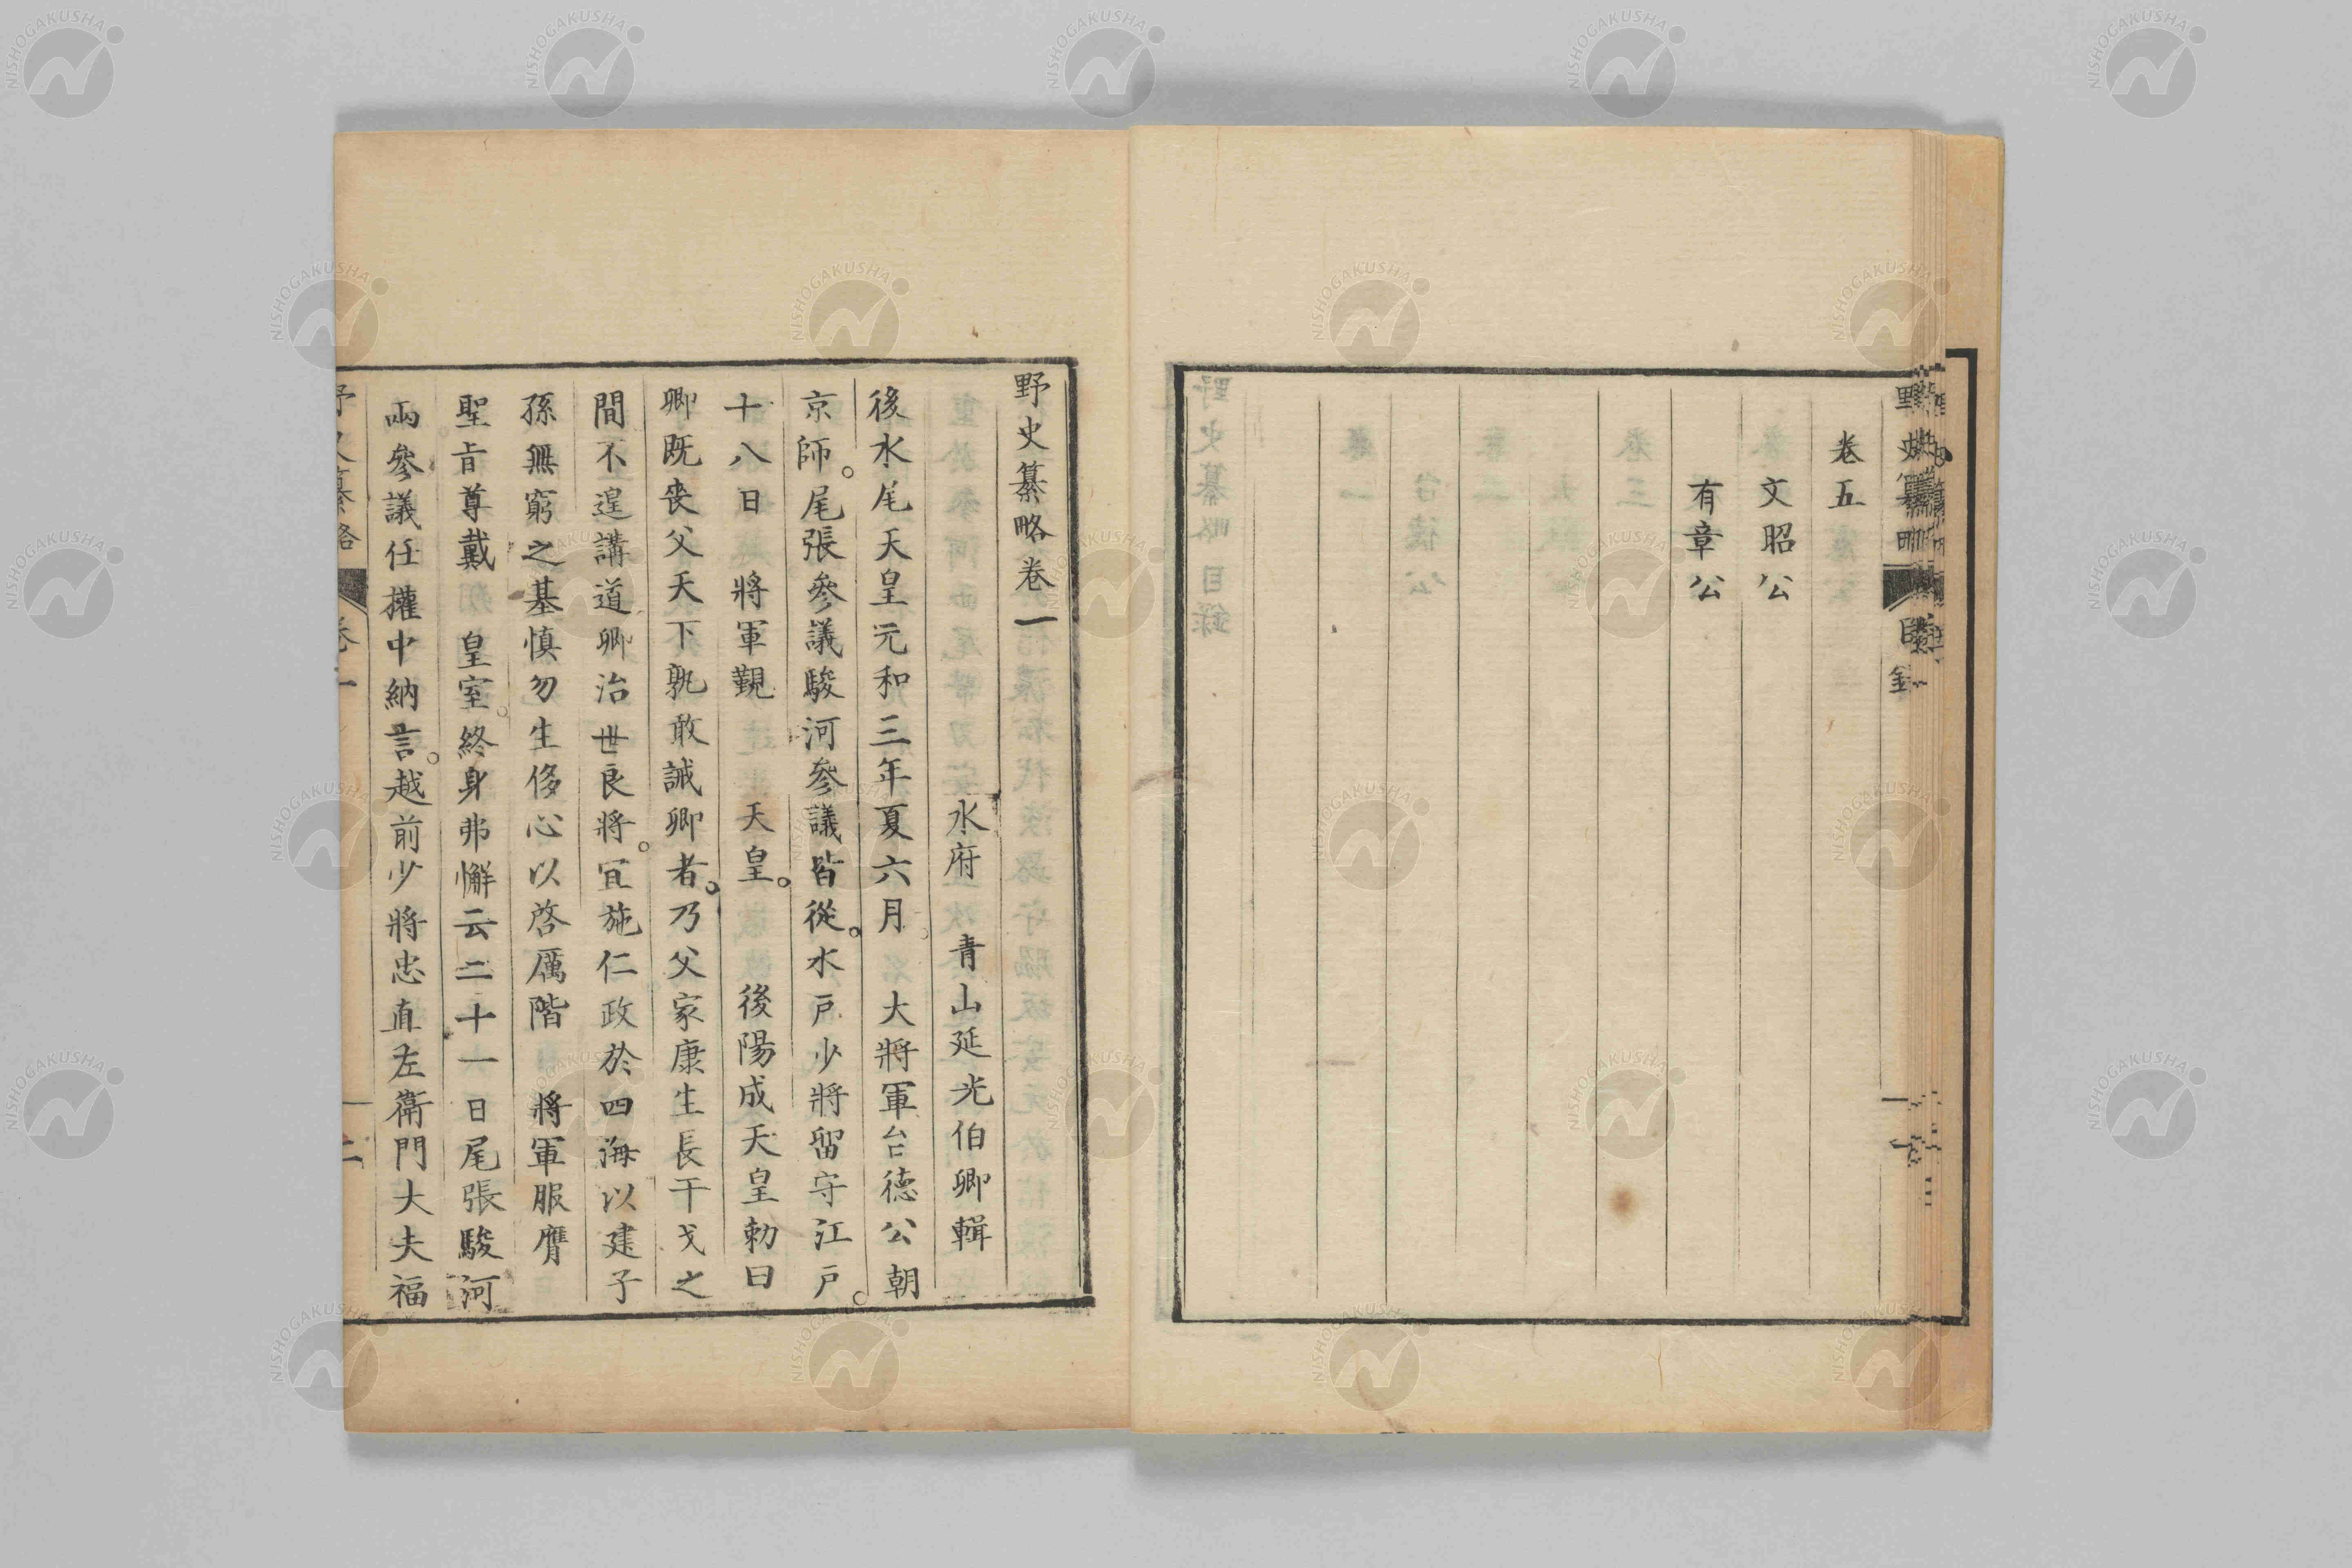 卷五
文昭公
有章公
野史纂略卷一
水府 青山延光伯卿輯
後水尾天皇元和三年夏六月 大將軍台德公朝
京師。尾張參議駿河參議皆從。水戶少將留守江戶。
十八日 將軍覲 天皇。 後陽成天皇勅曰
卿既喪父天下孰敢誡卿者。乃父家康生長干戈之
間不遑講道卿治世良將。宜施仁政於四海以建子
孫無窮之基慎勿生侈心以啓厲階 將軍服膺
聖旨尊戴 皇室。終身弗懈云二十一日尾張駿河
兩參議任權中納言。越前少將忠直左衛門大夫福
NISHOGAKUSHA